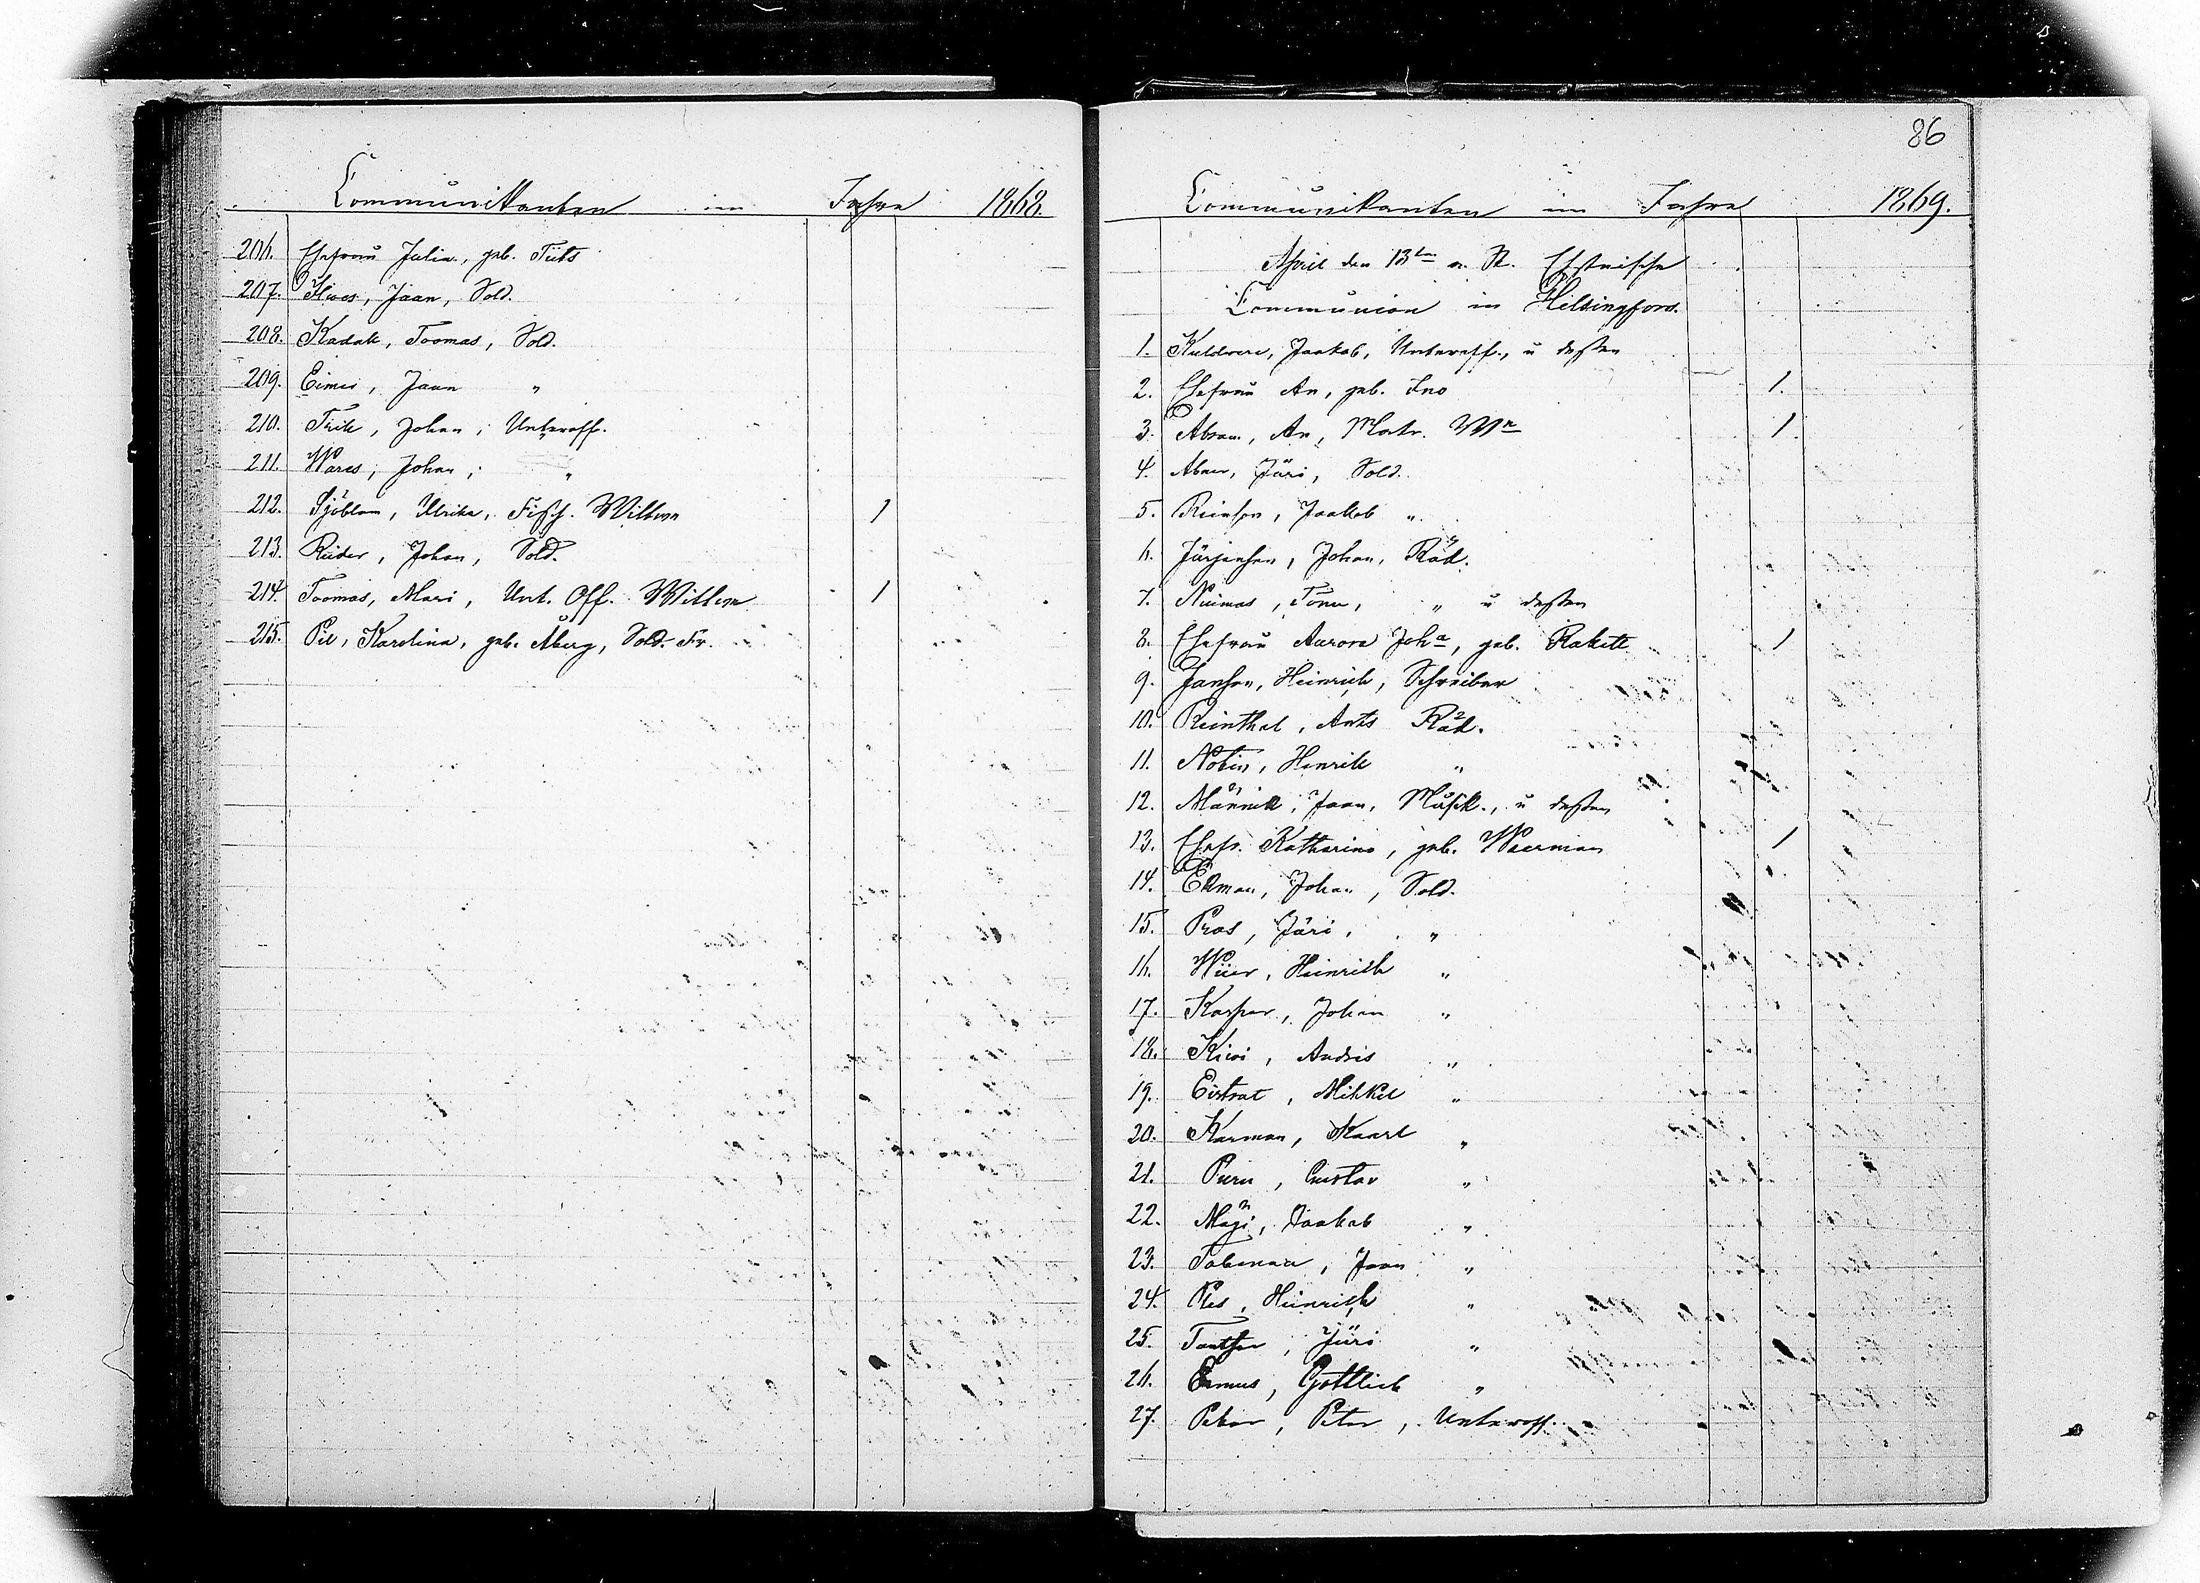 Communikanten im Jahre 1868.
206. Ehefrau Julia, geb. Tüts
207. Ilwes, Jaan, Sold.
208. Kadak, Toomas, Sold.
209. Eimes, Jaan "
210. Trik, Johan, Unteroff.
211. Wares, Johan, "
212. Sjöblom, Ulrika, Wittwe 1
213. Rüder, Johan, Sold.
214. Toomas, Mari, Unt. Off. Wittwe 1
215. Pil, Karolina, geb. Åberg, Sold. Fr.
86
Communikanten im Jahre 1869.
April den 13ten a. St. Ehstnische
Communion in Helsingfors.
1. Kuldwere, Jaakob, Unteroff., u dessen
2. Ehefrau An, geb. Ino 1.
3. Abram, An, Matr. Wwe 1.
4. Abner, Jüri, Sold.
5. Reinson, Jaakob "
6. Jürjenson, Johan,
7. Neimas, Tönu, " u dessen
8. Ehefrau Aurora Joha, geb. Rakett 1
9. Janson, Heinrich, Schreiber
10. Reinthal, Ants
11. Nobin, Henrik "
12. Männik, Jaan, Musik., u dessen
13. Ehefr. Katharina, geb. Waerman 1
14. Ekman, Johan, Sold.
15. Pras, Jüri, "
16. Wiier, Heinrich "
17. Kasper, Johan "
18. Kiwi, Andres "
19. Eistrat, Mihkel "
20. Karman, Kaarl "
21. Puru, Gustav "
22. Mägi, Jaakob "
23. Jaan "
24. Ples, Heinrich "
25. Jüri "
26. Ermus, Gottlieb "
27. Peter, Unteroff.